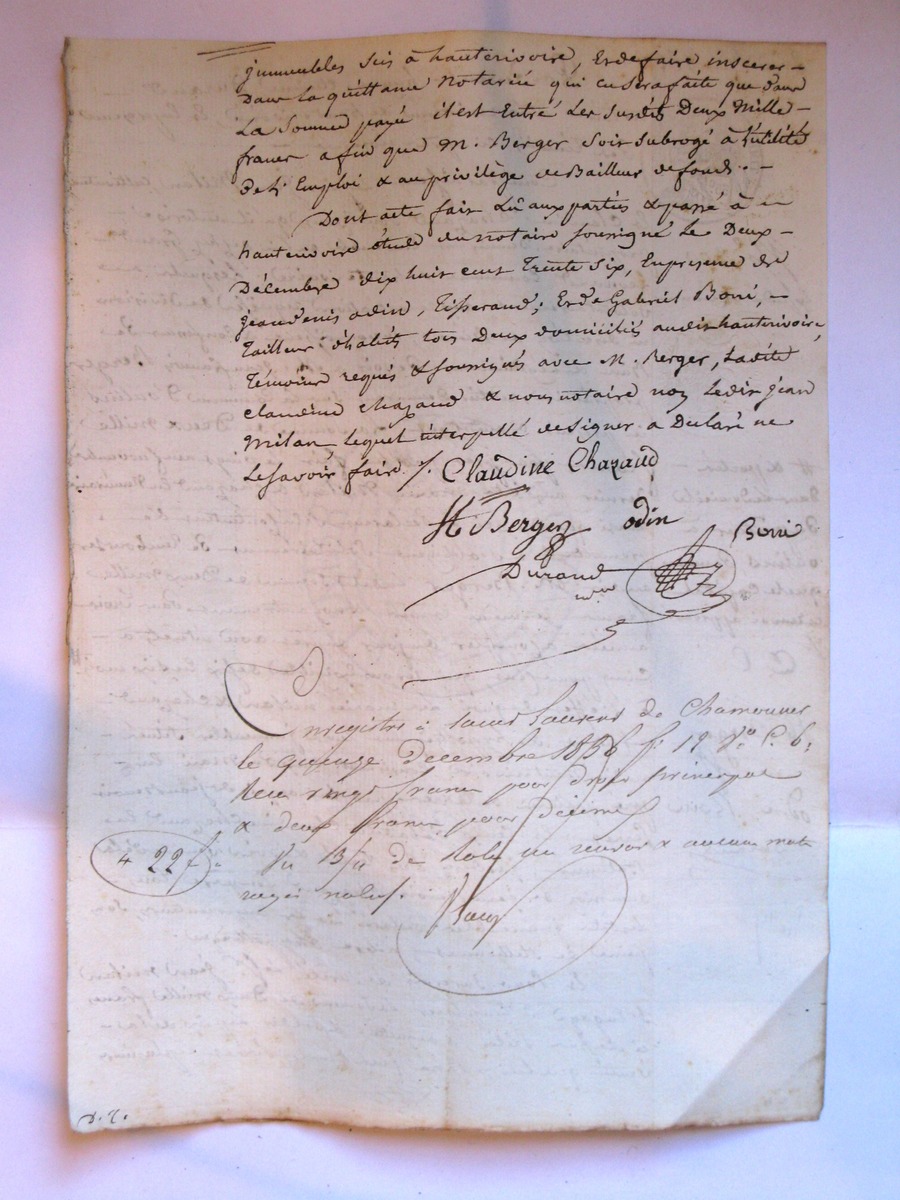 immeubles sis à hauterivoire, Et de faire inscerer
Dans la quittance Notariée qui en sera faite que dans
La Somme payé il est Entré Les Susdts Deux Mille
francs afin que M. Berger Soit Subrogé à l'utilité
de L'Emploi & au privilège de Bailleur de fonds. -
Dont acte fait Lû aux parties & passé à
hauterivoire étude du notaire Soussigné Le Deux
Décembre dix huit cent Trente Six, En presence de
jean denis odin, Tisserand; Et de Gabriel Borri, -
Tailleur d'habits tous Deux domiciliés audit hauterivoire,
Témoins requis & Soussignés avec M. Berger, Ladite
Claudine Chazaud & nous notaire non Ledit jean
Milan, Lequel interpellé de Signer a Declaré ne
Le Savoir faire ./. Claudine Chazaud
Berger odin Borri
Durand
Enregistré à Saint Laurent de Chamousset
le quinze decembre 1836 f. 19 Vo C. 6,
Reçu vingt francs pour droit principal
& deux francs pour décime
22f. de Role un renvoi & aucun mot
rayé nul
D. 7.